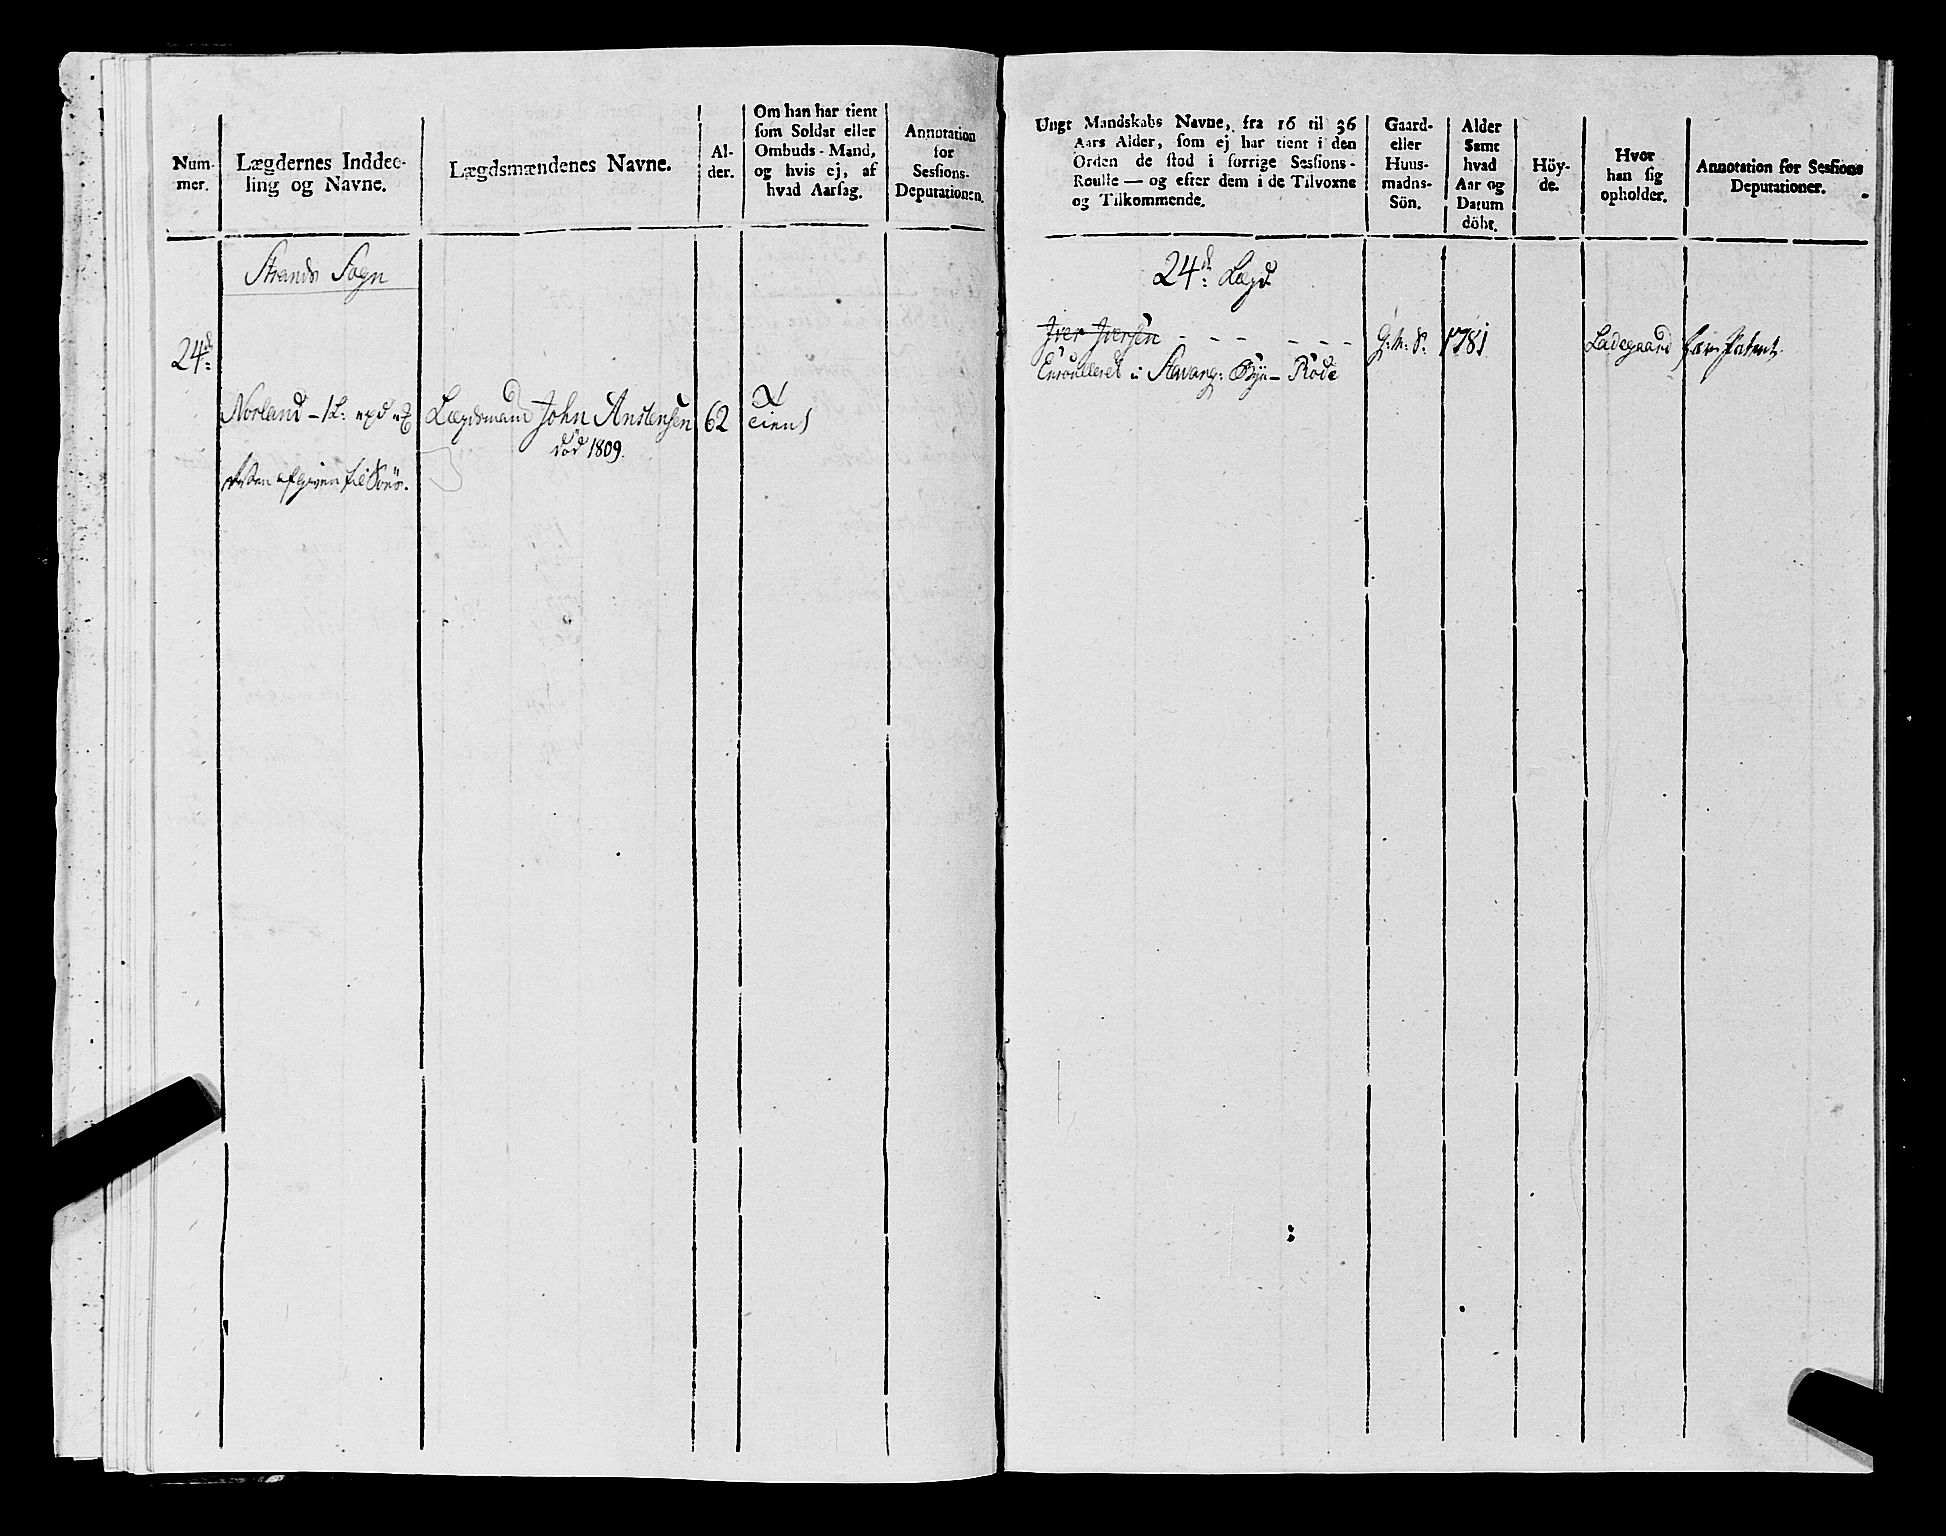 Num-
mer.
Lægdernes Inddee-
ling og Navne.
Lægdsmændenes Navne.
Al-
der.
Om han har tient
som Soldat eller
Ombuds-Mand,
og hvis ej, af
hvad Aarsag.
Annotation
for
Sessions-
Deputationen.
Strands Sogn
24de
Norland - 1 L:
Lægdsmand John Anstensen
62
død 1809.
afgiven til
Ungt Mandskabs Navne, fra 16 til 36
Aars Alder, som ej har tient i den
Orden de stod i forrige Sessions-
Roulle — og efter dem i de Tilvoxne
og Tilkommende.
Gaard-
eller
Huus-
madns-
Sön.
Alder
Samt
hvad
Aar og
Datum
döbt.
Höy-
de.
Hvor
han sig
opholder.
Annotation for Sessions
Deputationer.
24de Lægd
Iver Iversen - - - - - -
G: M: S:
1781
Ladegaard
har Patent
Enroulleret i Stavang: Byn- Rode